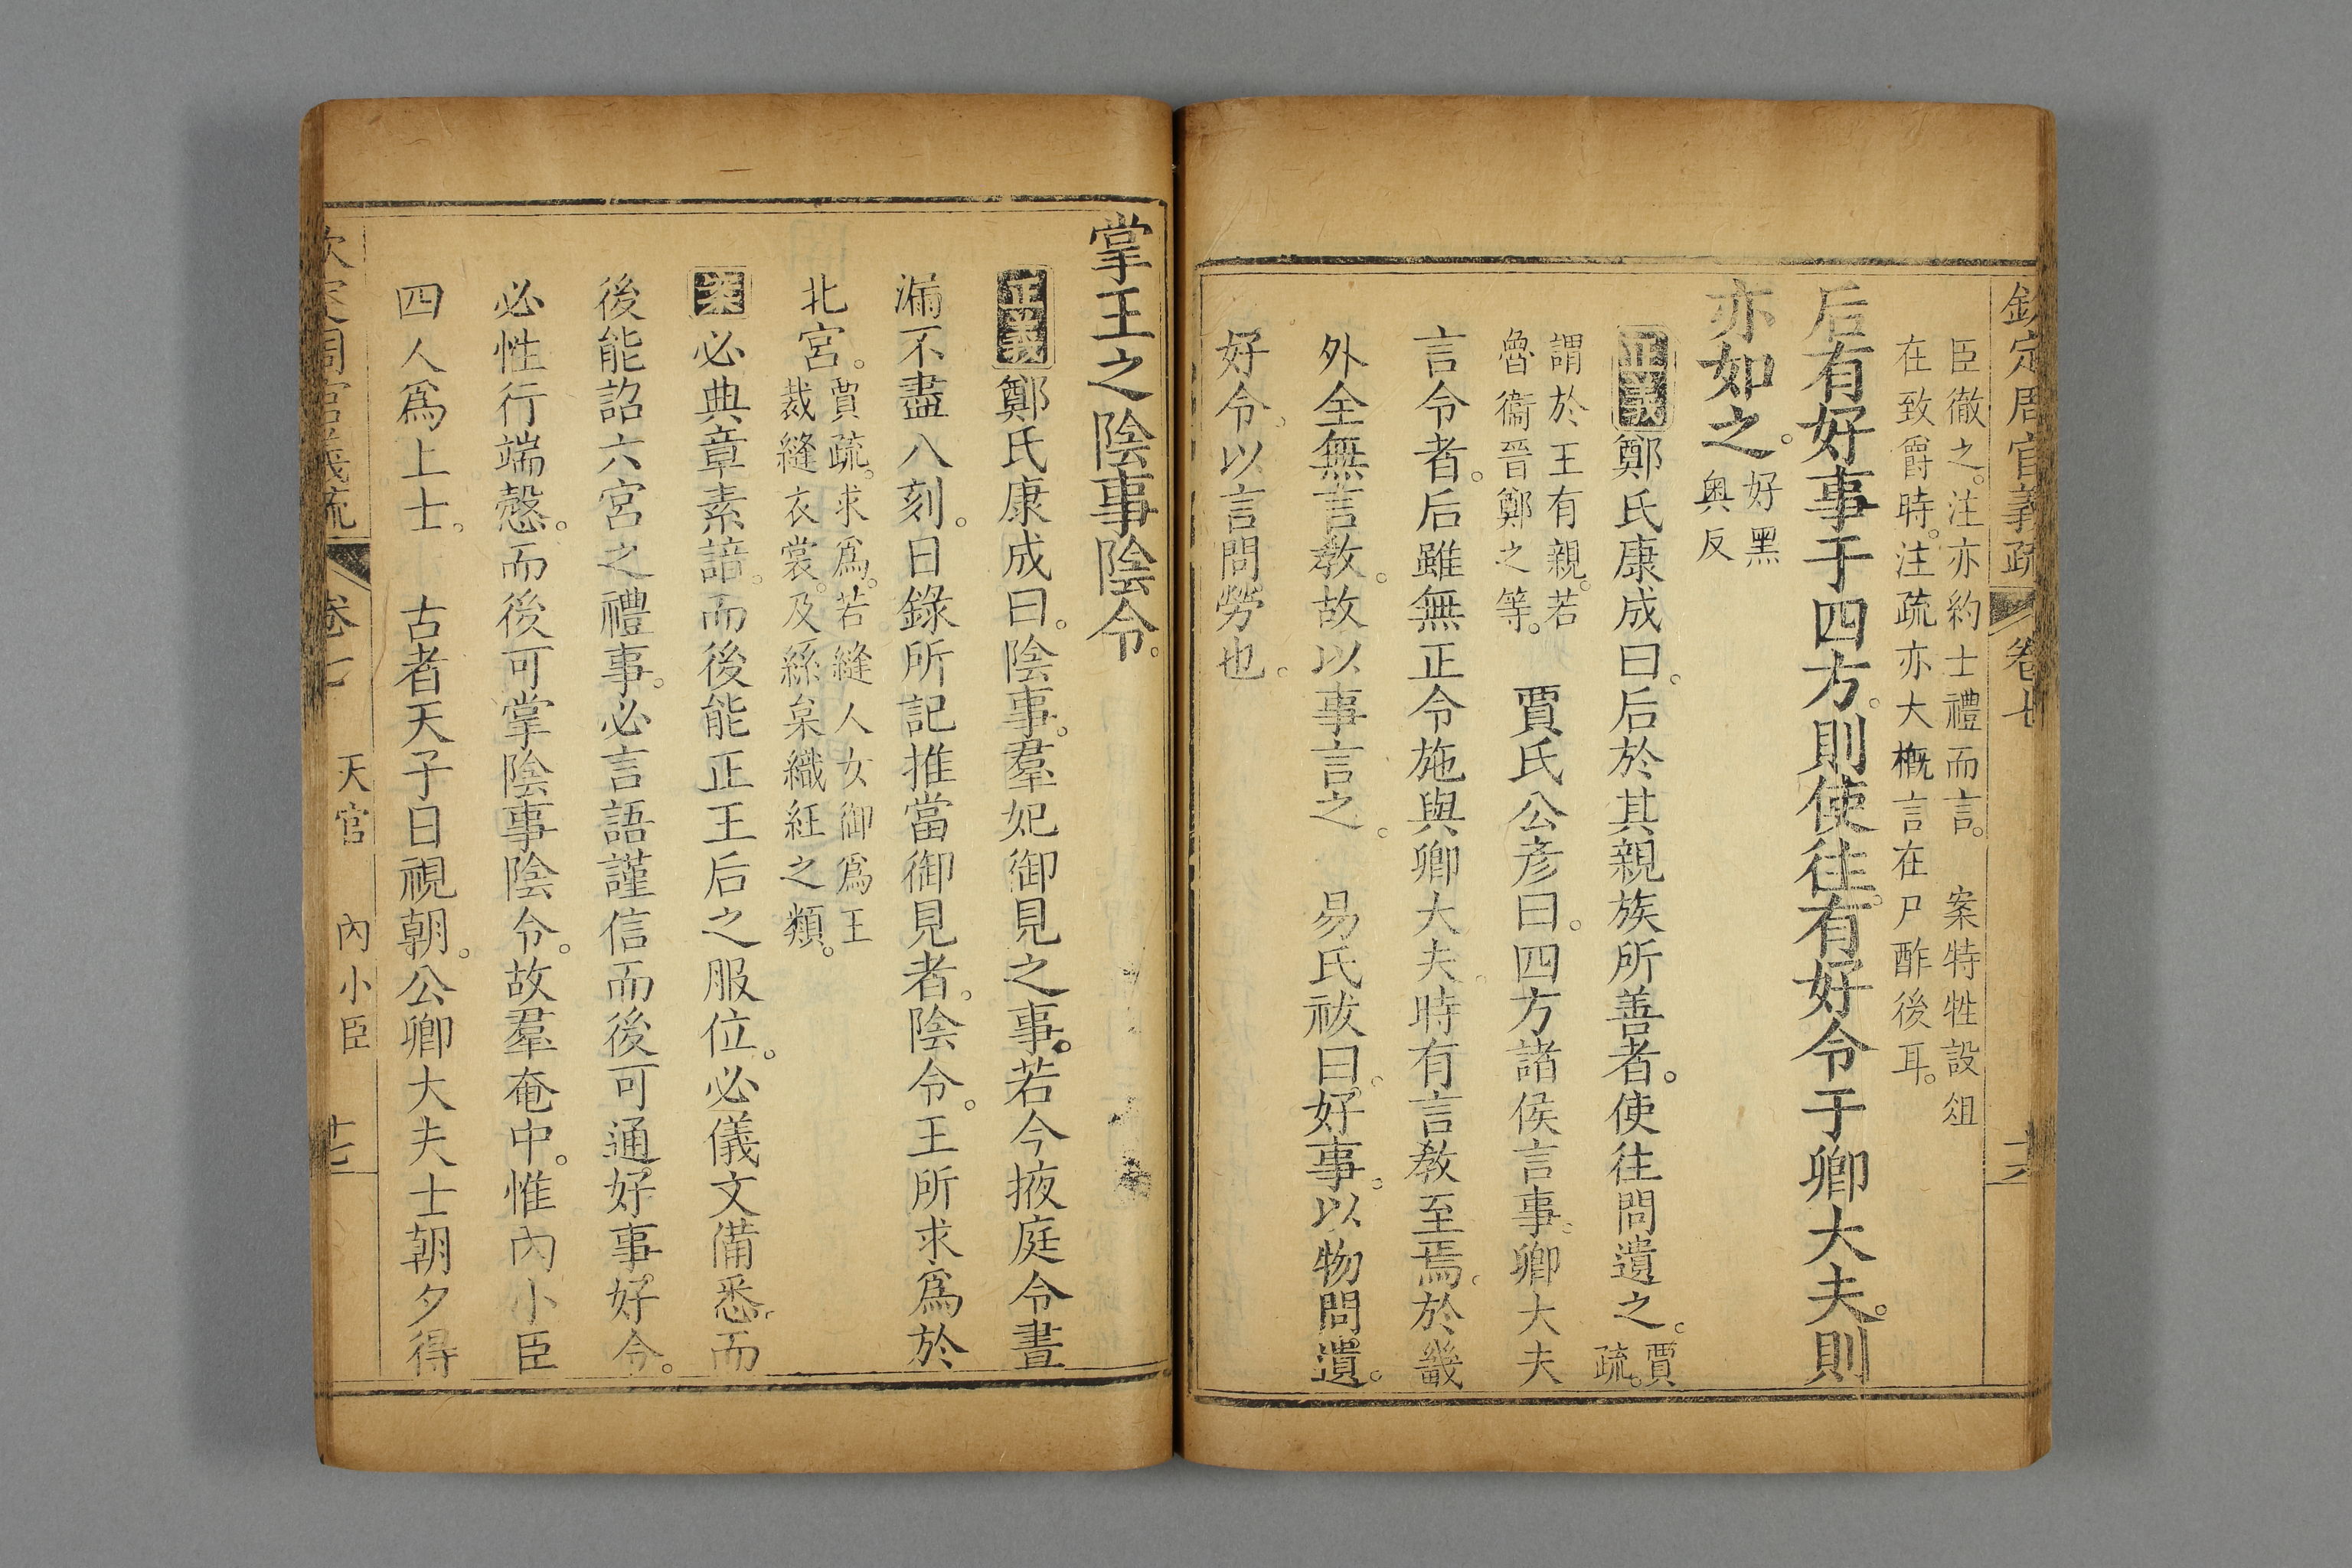 欽定周官義疏 卷七
臣徹之。注亦約士禮而言。 案特牲設俎
在致爵時。注疏亦大概言在尸酢後耳。
后有好事于四方。則使往。有好令于卿大夫。則
亦如之。好黑
奥反
正義鄭氏康成曰。后於其親族所善者。使往問遺之。賈
疏。
謂於王有親。若
魯衞晉鄭之等。 賈氏公彦曰。四方諸侯言事。卿大夫
言令者。后雖無正令施與卿大夫。時有言敎至焉。於畿
外全無言敎。故以事言之。 易氏祓曰。好事。以物問遺。
好令。以言問勞也。
掌王之陰事陰令。
正義鄭氏康成曰。陰事。羣妃御見之事。若今掖庭令晝
漏不盡八刻。白錄所記推當御見者。陰令。王所求爲於
北宮。賈疏。求爲。若縫人女御爲王
裁縫衣裳。及絲枲織紝之類。
案必典章素諳。而後能正王后之服位。必儀文備悉。而
後能詔六宮之禮事。必言語謹信而後可通好事好令。
必性行端慤。而後可掌陰事陰令。故羣奄中。惟內小臣
四人爲上士。 古者天子日視朝。公卿大夫士朝夕得
欽定周官義疏 卷七 天官 內小臣